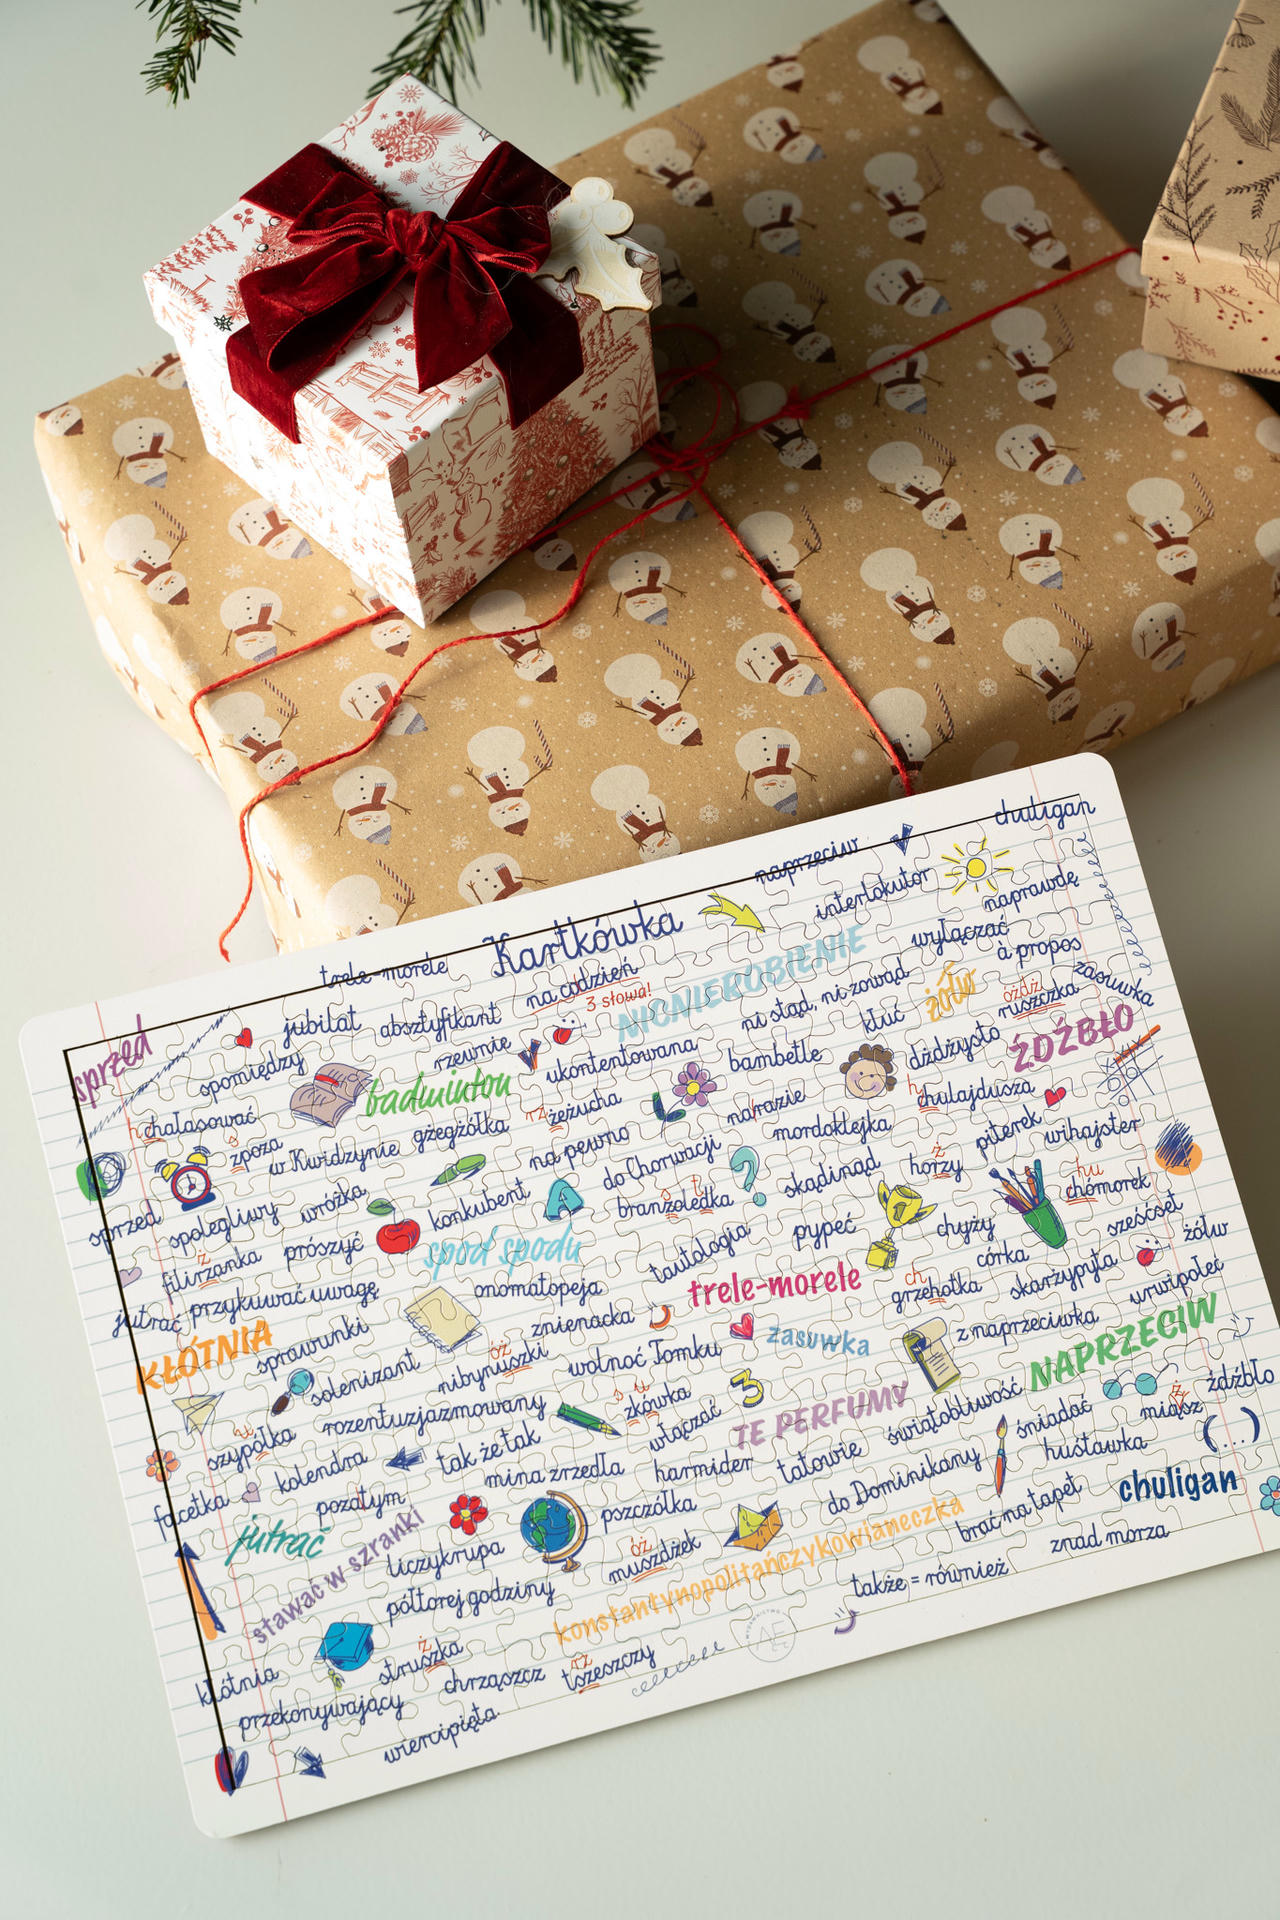 chuligan
naprzeciw
interlokutor
naprawdę
Kartkówka
trele-morele
na codzień
3 słowa!
NICNIEROBIENIE
wyłączać
à propos
zasuwka
sprzed
jubilat
absztyfikant
ni stąd, ni zowąd
kłuć
żółw
óżdż
ruszczka
ŹDŹBŁO
spomiędzy
rzewnie
ukontentowana
bambetle
dżdżysto
badminton
h
chałasować
rz
żeżucha
na razie
h
chulajdusza
s
zpoza
w Kwidzynie
gżegżółka
na pewno
mordoklejka
piterek
wihajster
sprzed
spolegliwy
wróżka
konkubent
do Chorwacji
skądinąd
ż
horzy
hu
chómorek
branzoledka
ż
filirzanka
prószyć
spod spodu
tautologia
pypeć
chyży
sześćset
żółw
jutrać
przykuwać uwagę
onomatopeja
trele-morele
córka
KŁÓTNIA
sprawunki
znienacka
ch
grzehotka
skarżypyta
urwipołeć
solenizant
óż
nibynuszki
wolnoć Tomku
zasuwka
z naprzeciwka
NAPRZECIW
u
szypółka
rozentuzjazmowany
s u
zkówka
włączać
TE PERFUMY
świątobliwość
śniadać
ż
miąsz
źdźbło
facetka
kolendra
tak że tak
mina zrzedła
harmider
tatowie
huśtawka
(...)
pozatym
pszczółka
do Dominikany
chuligan
jutrać
stawać w szranki
liczykrupa
óż
muszdżek
konstantynopolitańczykowianeczka
brać na tapet
znad morza
półtorej godziny
także = również
kłótnia
ż
struszka
chrząszcz
rz
tszeszczy
WYDAWNICTWO
przekonywający
wiercipięta